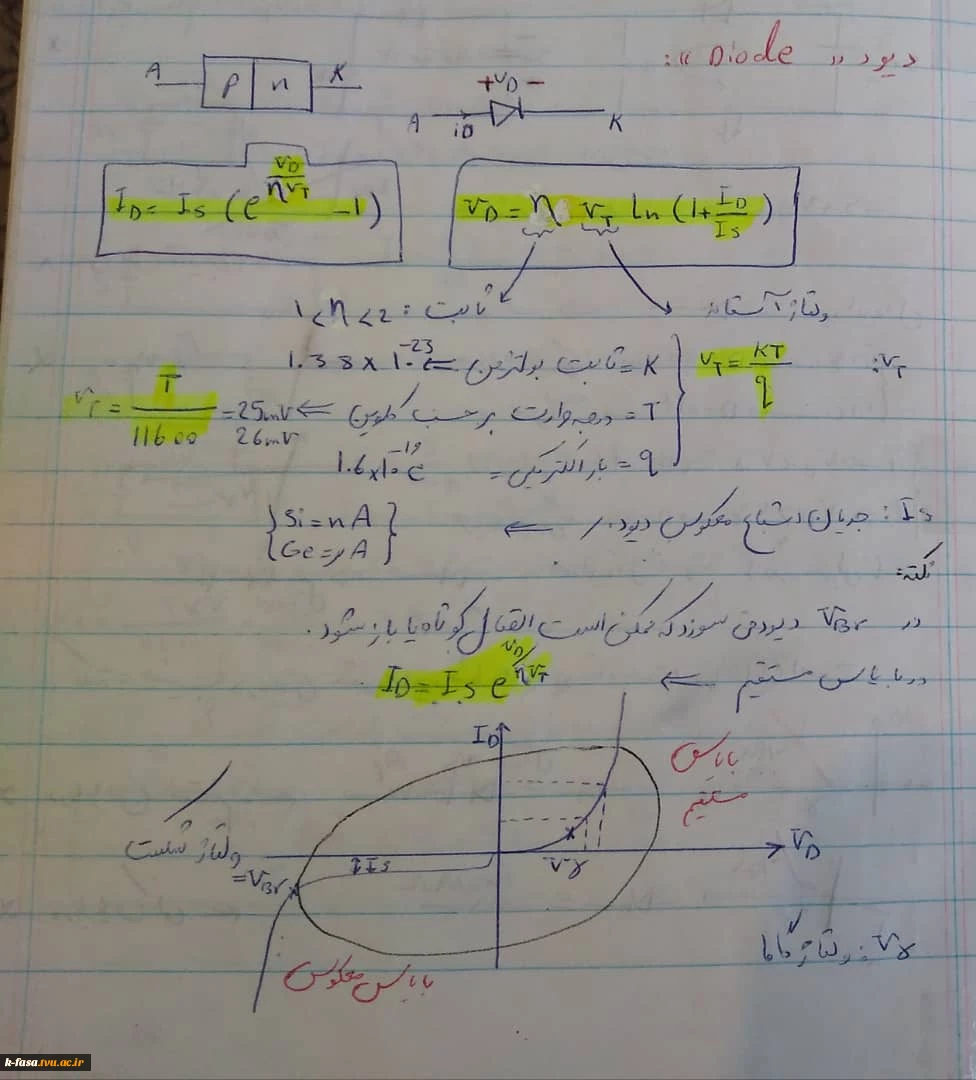 دیود « Diode »:
A P n K
+ VD -
A iD K
ID = Is (e^(VD/ηVT) - 1)
VD = η VT ln (1 + ID/Is)
ولتاژ آستانه
ثابت : 1 < η < 2
VT: VT = KT/q
K = ثابت بولتزمن ⇐ 1.38 × 10^-23
T = درجه حرارت بر حسب کلوین ⇐ VT = T/11600 = 25mV
26mV
q = بار الکتریکی = 1.6 × 10^-19 c
Is : جریان اشباع معکوس دیود ⇐
{ Si = nA }
{ Ge = μA }
نکته:
در VBr دیود می سوزد که ممکن است اتصال کوتاه یا باز شود.
در بایاس مستقیم ⇐ ID = Is e^(VD/ηVT)
ID
بایاس
مستقیم
VD
Vγ
↕Is
ولتاژ شکست
= VBr
Vγ : ولتاژ گاما
بایاس معکوس
k-fasa.tvu.ac.ir